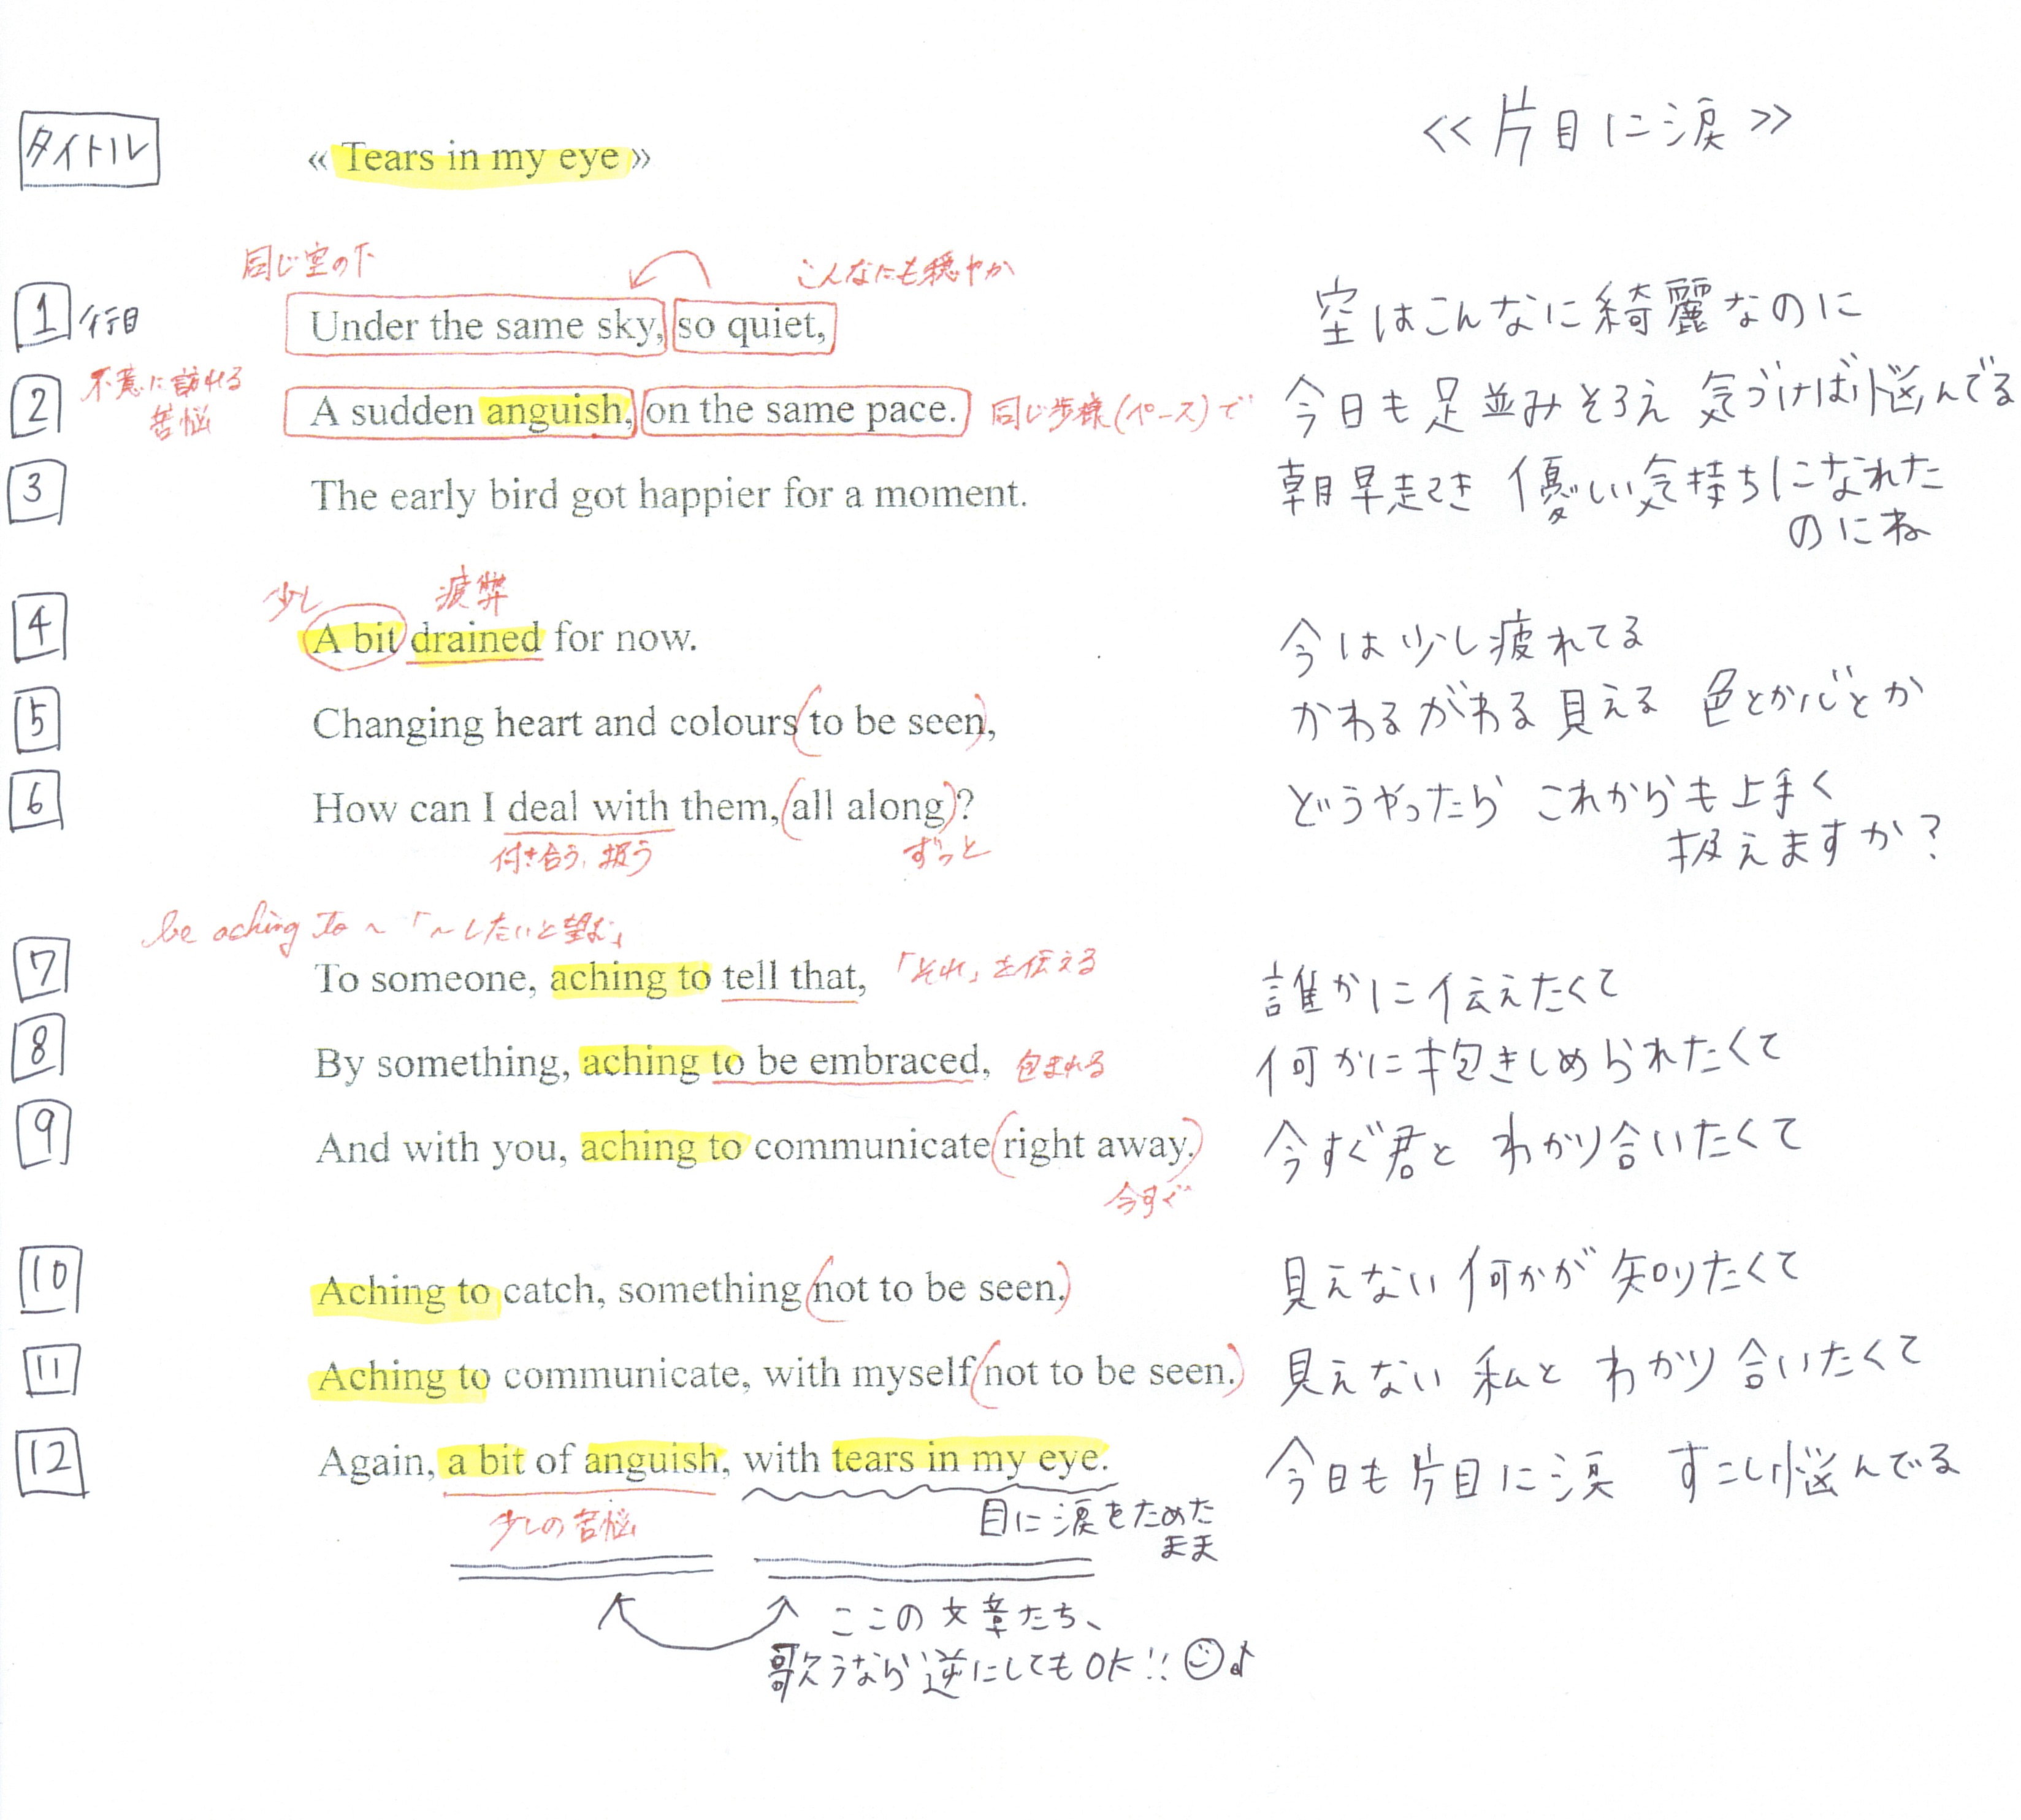 タイトル « Tears in my eye » <<片目に涙>>
同じ空の下 こんなにも穏やか
1行目 Under the same sky, so quiet, 空はこんなに綺麗なのに
不意に訪れる
苦悩
2 A sudden anguish, on the same pace. 同じ歩様(ペース)で 今日も足並みそろえ 気づけば悩んでる
3 The early bird got happier for a moment. 朝早起き 優しい気持ちになれた
のにね
少し 疲弊
4 A bit drained for now. 今は少し疲れてる
5 Changing heart and colours to be seen, かわるがわる見える 色とか心とか
6 How can I deal with them, all along? どうやったら これからも上手く
付き合う、扱う ずっと 扱えますか?
be aching to ~ 「~したいと望む」
7 To someone, aching to tell that, 「それ」を伝える 誰かに伝えたくて
8 By something, aching to be embraced, 包まれる 何かに抱きしめられたくて
9 And with you, aching to communicate right away. 今すぐ君と わかり合いたくて
今すぐ
10 Aching to catch, something not to be seen. 見えない何かが 知りたくて
11 Aching to communicate, with myself not to be seen. 見えない私と わかり合いたくて
12 Again, a bit of anguish, with tears in my eye. 今日も片目に涙 すこし悩んでる
少しの苦悩 目に涙をためた
まま
ここの文章たち、
歌うなら逆にしてもOK!! ☺♪